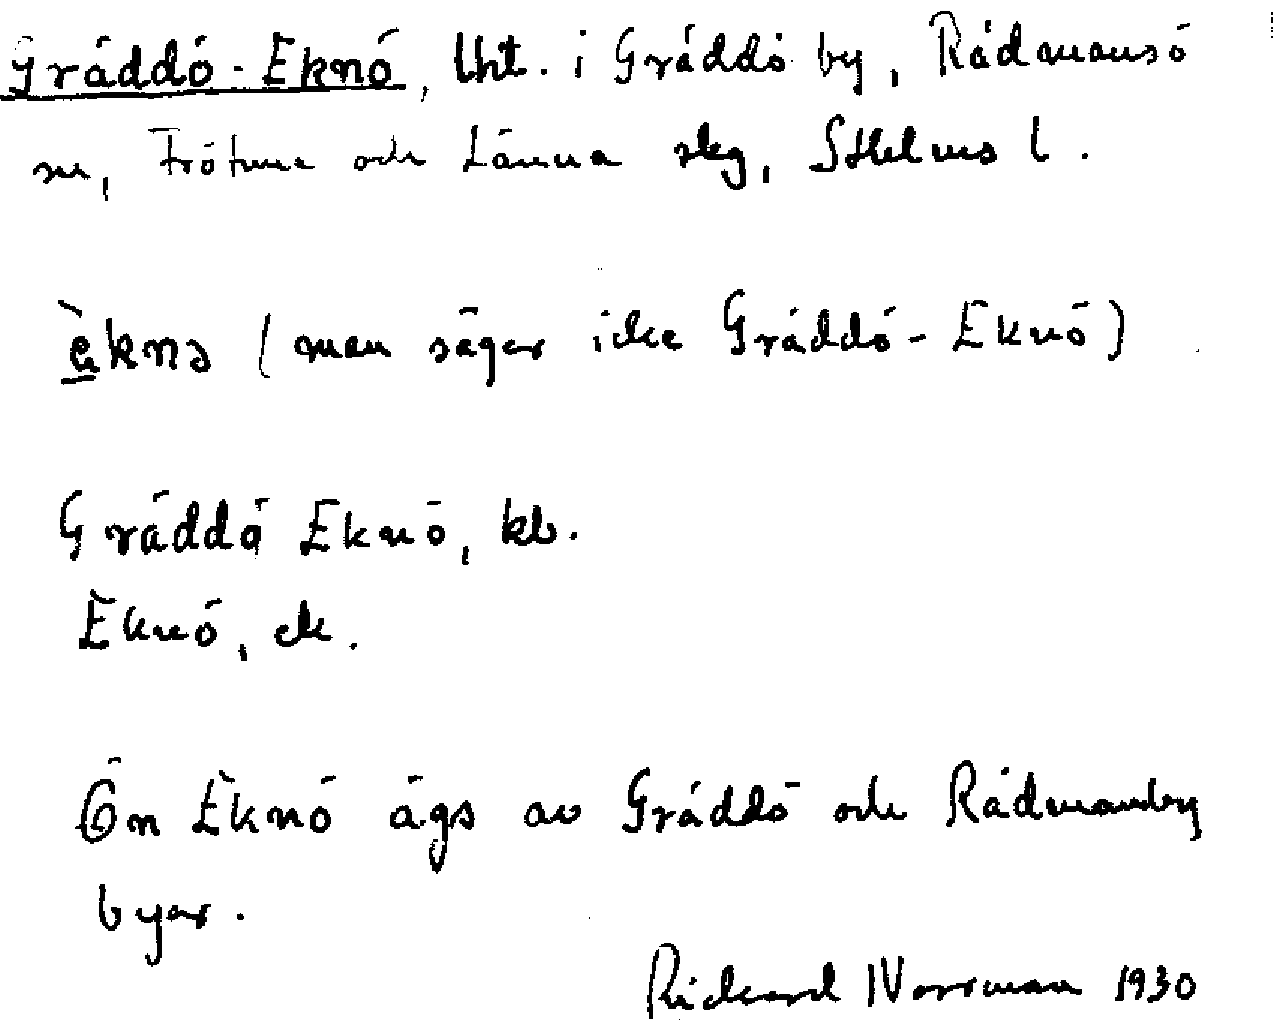 Gräddö-Eknö, lht. i Gräddö by, Rådmansö
sn, Frötuna och Länna skg, Sthlms l.
è̱knə (man säger icke Gräddö-Eknö)
Gräddö Eknö, kb.
Eknö, ek.
Ön Eknö ägs av Gräddö och Rådmanby
byar.
Rickard Norrman 1930